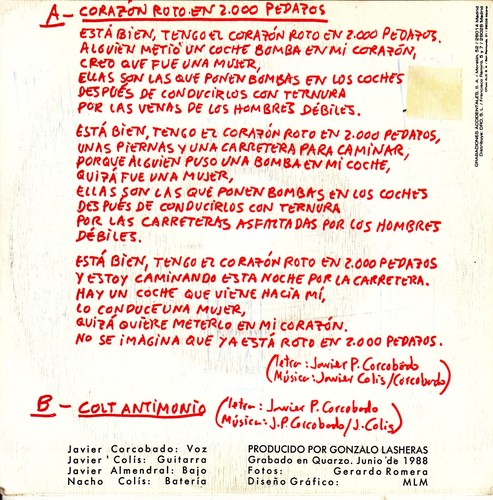 A - CORAZÓN ROTO EN 2.000 PEDAZOS
ESTÁ BIEN, TENGO EL CORAZÓN ROTO EN 2.000 PEDAZOS.
ALGUIEN METIÓ UN COCHE BOMBA EN MI CORAZÓN,
CREO QUE FUE UNA MUJER,
ELLAS SON LAS QUE PONEN BOMBAS EN LOS COCHES
DESPUÉS DE CONDUCIRLOS CON TERNURA
POR LAS VENAS DE LOS HOMBRES DÉBILES.
ESTÁ BIEN, TENGO EL CORAZÓN ROTO EN 2.000 PEDAZOS,
UNAS PIERNAS Y UNA CARRETERA PARA CAMINAR,
PORQUE ALGUIEN PUSO UNA BOMBA EN MI COCHE,
QUIZÁ FUE UNA MUJER,
ELLAS SON LAS QUE PONEN BOMBAS EN LOS COCHES
DESPUÉS DE CONDUCIRLOS CON TERNURA
POR LAS CARRETERAS ASFALTADAS POR LOS HOMBRES
DÉBILES.
ESTÁ BIEN, TENGO EL CORAZÓN ROTO EN 2.000 PEDAZOS
Y ESTOY CAMINANDO ESTA NOCHE POR LA CARRETERA.
HAY UN COCHE QUE VIENE HACIA MÍ,
LO CONDUCE UNA MUJER,
QUIZÁ QUIERE METERLO EN MI CORAZÓN.
NO SE IMAGINA QUE YA ESTÁ ROTO EN 2.000 PEDAZOS.
(letra: Javier P. Corcobado
Música: Javier Colis/Corcobado)
B - COLT ANTIMONIO (letra: Javier P. Corcobado
Música: J.P. Corcobado/J. Colis)
Javier Corcobado: Voz
Javier Colís: Guitarra
Javier Almendral: Bajo
Nacho Colís: Batería
PRODUCIDO POR GONZALO LASHERAS
Grabado en Quarzo. Junio de 1988
Fotos: Gerardo Romera
Diseño Gráfico: MLM
GRABACIONES ACCIDENTALES, S. A.